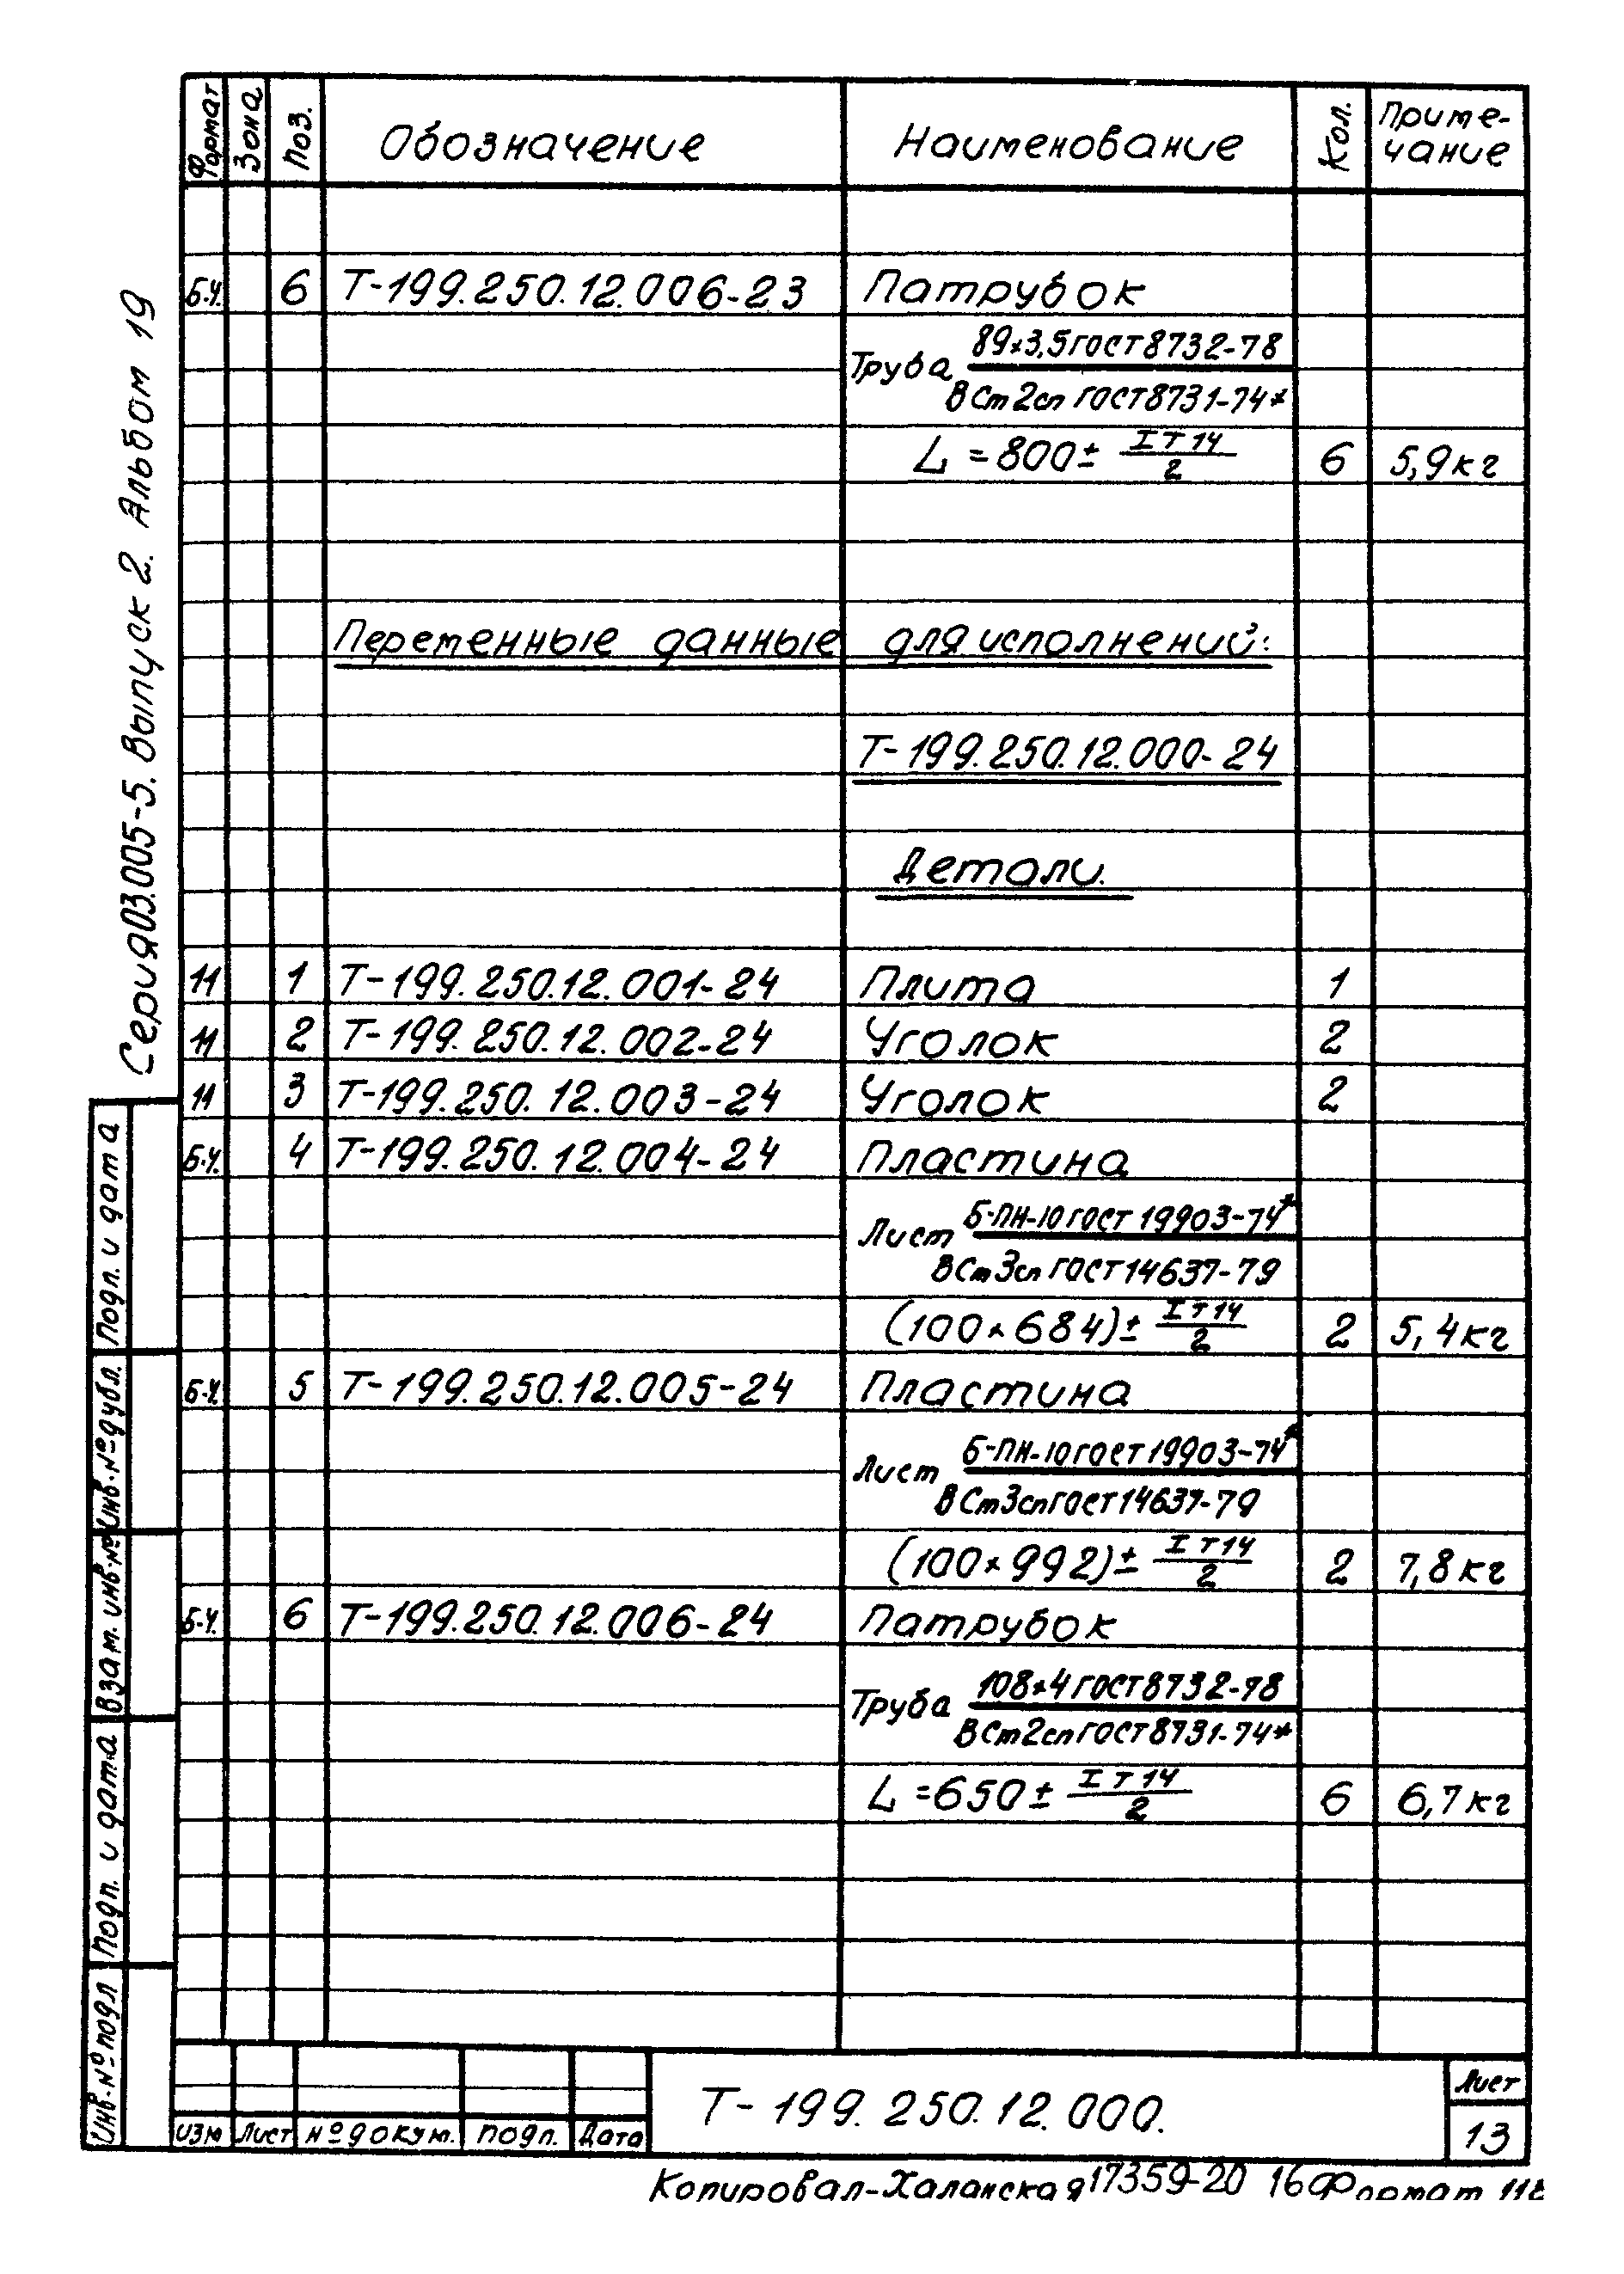 Формат Зона Поз. Обозначение Наименование Кол. Приме-
чание
Б.Ч. 6 Т-199.250.12.006-23 Патрубок
Труба 89×3,5 ГОСТ 8732-78
ВСт2сп ГОСТ 8731-74*
L = 800 ± IT14/2 6 5,9кг
Переменные данные для исполнений:
Т-199.250.12.000-24
Детали.
11 1 Т-199.250.12.001-24 Плита 1
11 2 Т-199.250.12.002-24 Уголок 2
11 3 Т-199.250.12.003-24 Уголок 2
Б.Ч. 4 Т-199.250.12.004-24 Пластина
Лист Б-ПН-10 ГОСТ 19903-74*
ВСт3сп ГОСТ 14637-79
(100×684) ± IT14/2 2 5,4кг
Б.Ч. 5 Т-199.250.12.005-24 Пластина
Лист Б-ПН-10 ГОСТ 19903-74*
ВСт3сп ГОСТ 14637-79
(100×992) ± IT14/2 2 7,8кг
Б.Ч. 6 Т-199.250.12.006-24 Патрубок
Труба 108×4 ГОСТ 8732-78
ВСт2сп ГОСТ 8731-74*
L = 650 ± IT14/2 6 6,7кг
Серия 03.005-5. Выпуск 2. Альбом 19
Подп. и дата
Инв.№ дубл.
Взам. инв.№
Подп. и дата
Инв.№ подл
Изм Лист № докум. Подп. Дата
Т-199.250.12.000.
Лист
13
Копировал-Халанская 17359-20 16 Формат 11